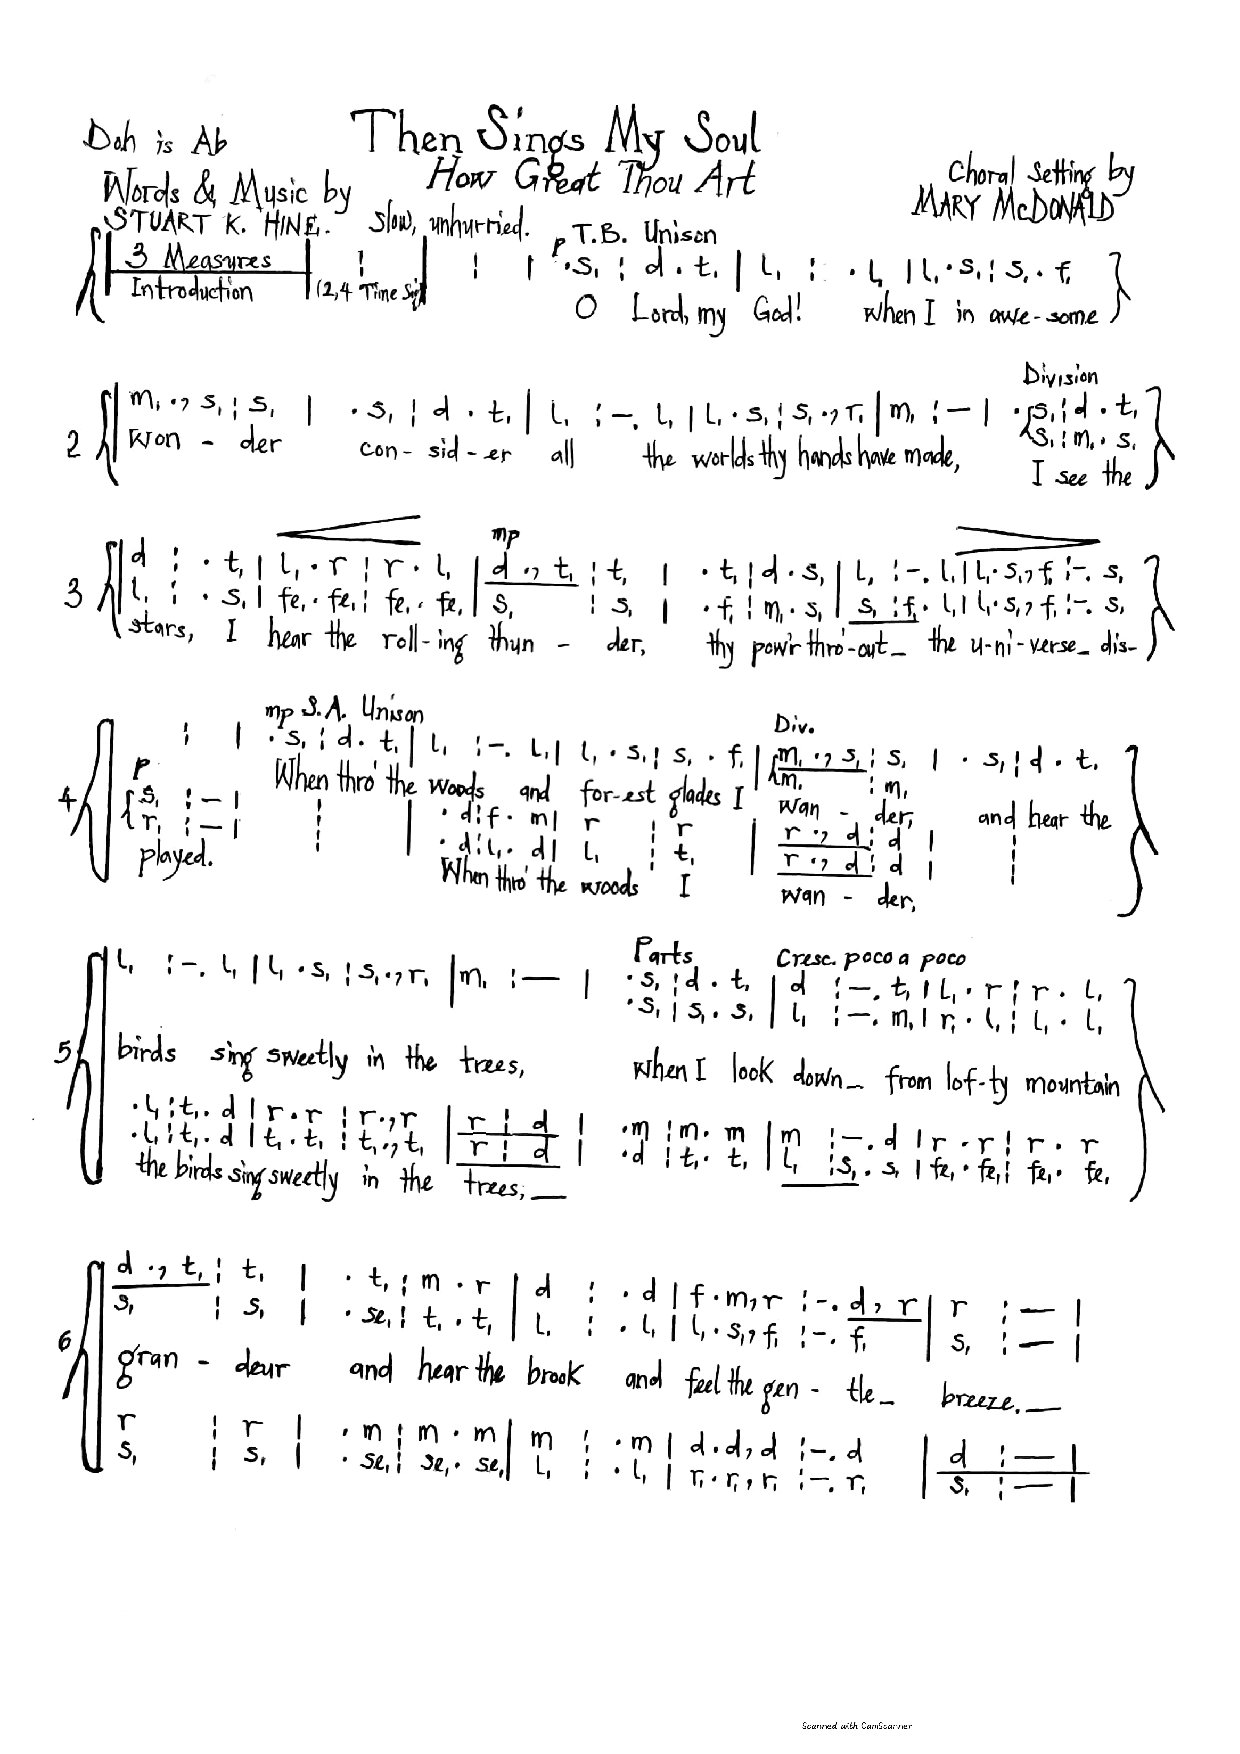 Doh is Ab
Then Sings My Soul
How Great Thou Art
Words & Music by
STUART K. HINE.
Choral Setting by
MARY McDONALD
Slow, unhurried.
p T.B. Unison
3 Measures | ¦ | ¦ | .s, ¦ d . t, | l, : . l, | l, . s, ¦ s, . f,
Introduction (2,4 Time Sig)
O Lord, my God! when I in awe-some
Division
2 m, ., s, ¦ s, | . s, ¦ d . t, | l, : -. l, | l, . s, ¦ s, ., r, | m, : — | . s, ¦ d . t,
s, ¦ m, . s,
won - der con - sid - er all the worlds thy hands have made, I see the
mp
3 d : . t, | l, . r ¦ r . l, | d ., t, ¦ t, | . t, ¦ d . s, | l, : -. l, | l, . s, , f, ¦ -. s,
l, : . s, | fe, . fe, ¦ fe, . fe, | s, ¦ s, | . f, ¦ m, . s, | s, : f, . l, | l, . s, , f, ¦ -. s,
stars, I hear the roll-ing thun - der, thy pow'r thro'-out_ the u-ni-verse_ dis-
mp S.A. Unison
Div.
¦ | . s, ¦ d . t, | l, : -. l, | l, . s, ¦ s, . f, | m, ., s, ¦ s, | . s, ¦ d . t,
m, ¦ m,
When thro' the woods and for-est glades I wan - der, and hear the
p
4 s, : — | ¦ | . d ¦ f . m | r ¦ r | r ., d ¦ d | ¦
r, : — | ¦ | . d ¦ l, . d | l, ¦ t, | r ., d ¦ d | ¦
played. When thro' the woods I wan - der,
Parts Cresc. poco a poco
l, : -. l, | l, . s, ¦ s, ., r, | m, : — | . s, ¦ d . t, | d : -. t, | l, . r ¦ r . l,
. s, | s, . s, | l, : -. m, | r, . l, ¦ l, . l,
5 birds sing sweetly in the trees, when I look down_ from lof-ty mountain
. l, ¦ t, . d | r . r ¦ r ., r | r ¦ d | . m ¦ m . m | m : -. d | r . r ¦ r . r
. l, ¦ t, . d | t, . t, ¦ t, ., t, | r ¦ d | . d ¦ t, . t, | l, : s, . s, | fe, . fe, ¦ fe, . fe,
the birds sing sweetly in the trees,__
d ., t, ¦ t, | . t, ¦ m . r | d : . d | f . m , r : -. d , r | r : — |
s, ¦ s, | . se, ¦ t, . t, | l, : . l, | l, . s, , f, : -. f, | s, : — |
6 gran - deur and hear the brook and feel the gen - tle_ breeze.__
r ¦ r | . m ¦ m . m | m : . m | d . d , d : -. d | d : — |
s, ¦ s, | . se, ¦ se, . se, | l, : . l, | r, . r, , r, : -. r, | s, : — |
Scanned with CamScanner